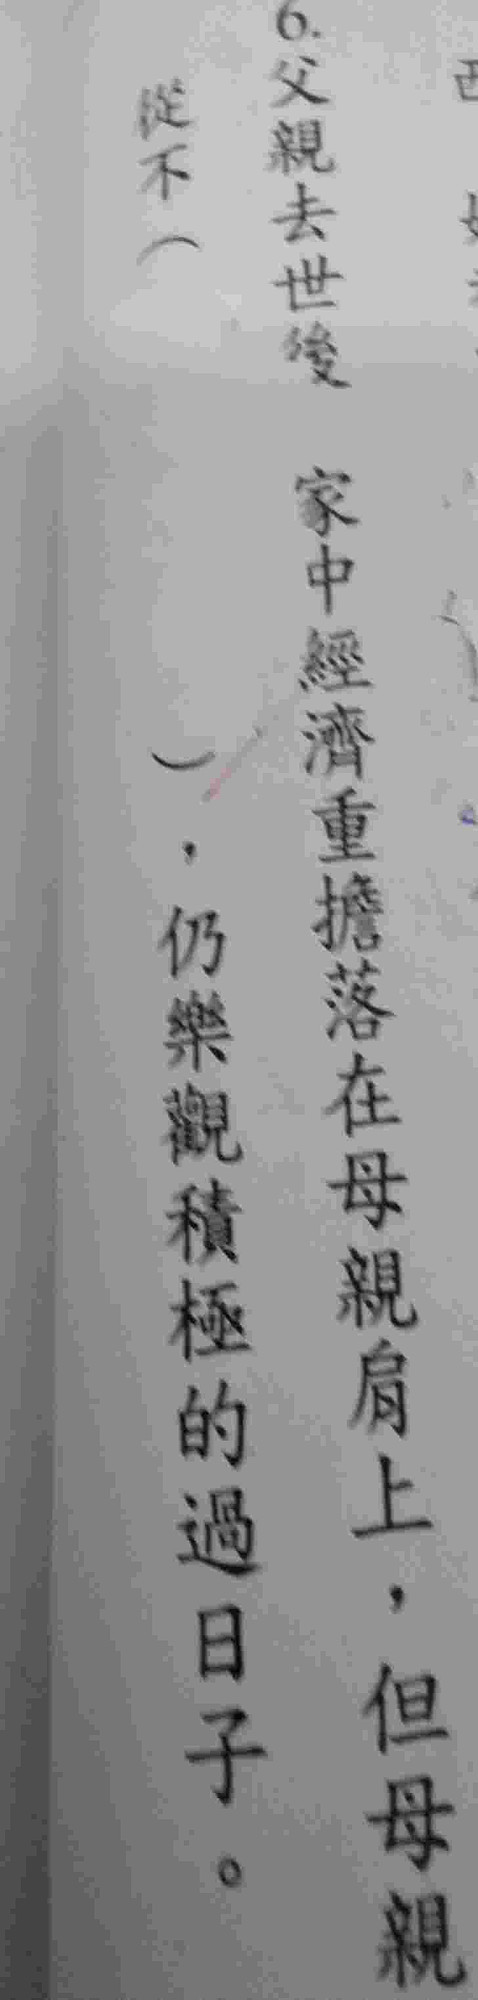 6.父親去世後 家中經濟重擔落在母親肩上，但母親
從不（ ），仍樂觀積極的過日子。